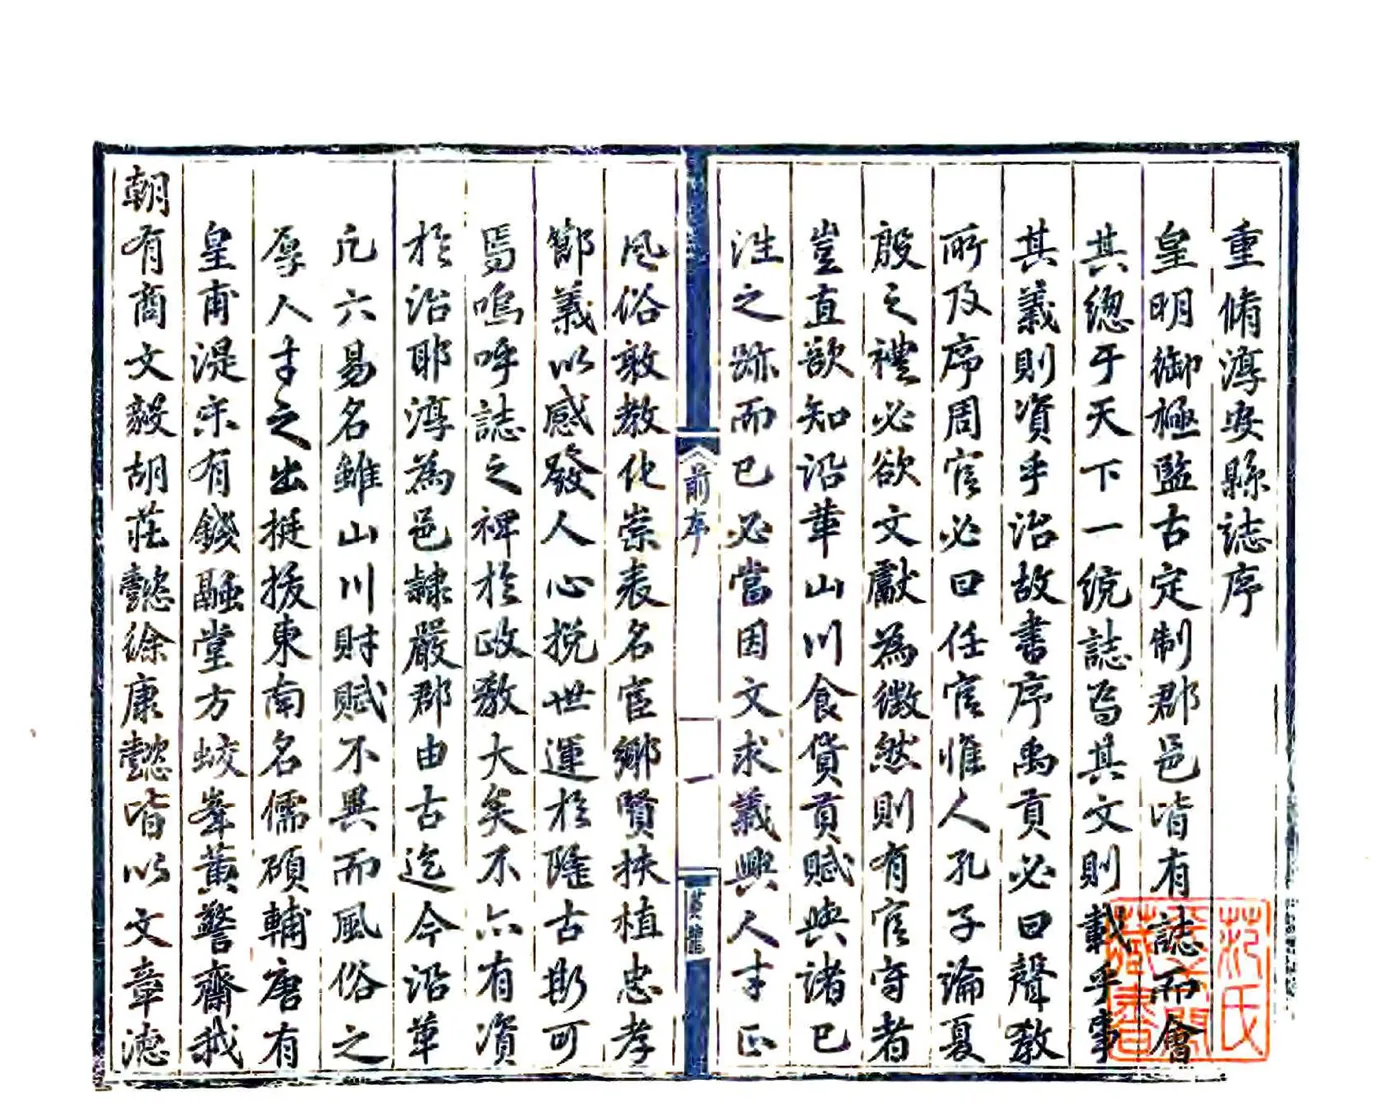 重脩淳安縣誌序
皇明御極監古定制郡邑皆有誌而會
其總于天下一統誌焉其文則載乎事
其義則資乎治故書序禹貢必曰聲教
所及序周官必曰任官惟人孔子論夏
殷之禮必欲文獻為徴然則有官守者
豈直欲知沿革山川食貨貢賦與諸已
徃之跡而已必當因文求義興人才正
前序
一
風俗敦教化崇表名宦鄉賢扶植忠孝
節義以感發人心挽世運於隆古斯可
焉嗚呼誌之裨於政教大矣不亦有資
於治耶淳為邑隷嚴郡由古迄今沿革
凡六易名雖山川財賦不異而風俗之
厚人才之出挺拔東南名儒碩輔唐有
皇甫湜宋有錢融堂方蛟峯黃警齋我
朝有商文毅胡莊懿徐康懿皆以文章德
范氏
天一閣
藏書